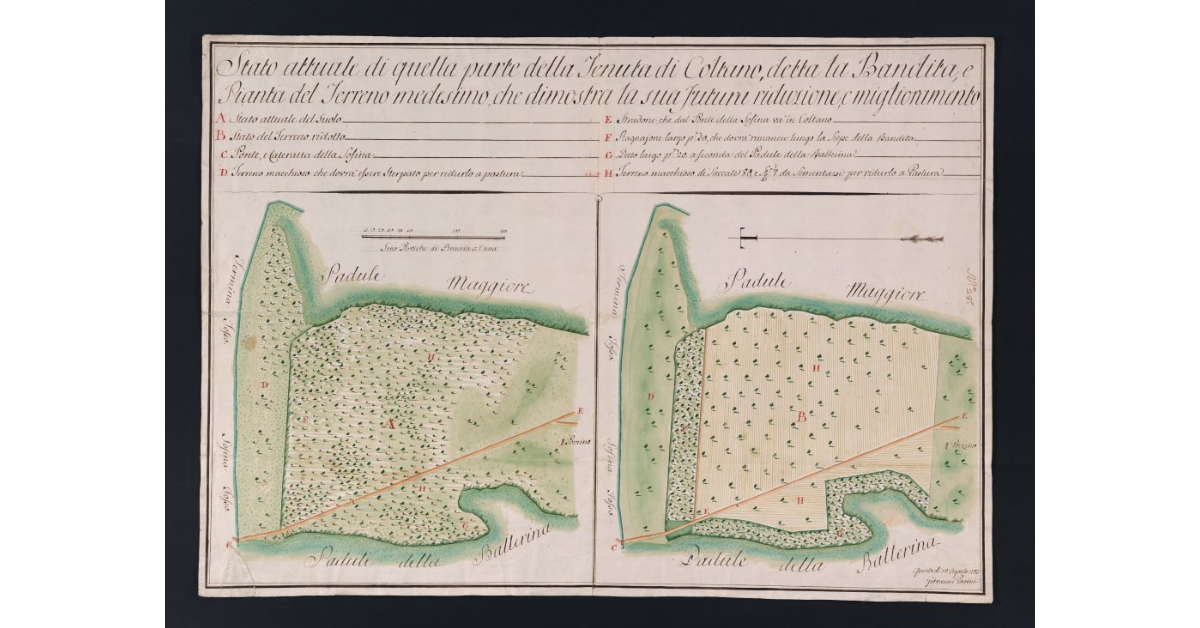 Stato attuale di quella parte della Tenuta di Coltano, detta la Bandita, e
Pianta del Terreno medesimo, che dimostra la sua futura riduzione, e miglioramento
A Stato attuale del Suolo
B Stato del Terreno ridotto
C Ponte, e Cateratta della Sofina
D Terreno macchioso che dovrà essere Sterpato per ridurlo a pastura
E Stradone che dal Ponte della Sofina va in Coltano
F Ragnajone largo p. 30, che dovrà rimanere lungo la Siepe della Bandita
G Detto largo p. 20 a seconda del Padule della Ballerina
H Terreno macchioso di Saccate 80, e per ridurlo a Pastura
Padule Maggiore
Fossa
Sofina Fossa
D
H
F
A
E
H
G
Padule della Ballerina
Padule Maggiore
Fossa
Sofina Fossa
D
H
B
E
H
F
G
C
Padule della Ballerina
Giovanni